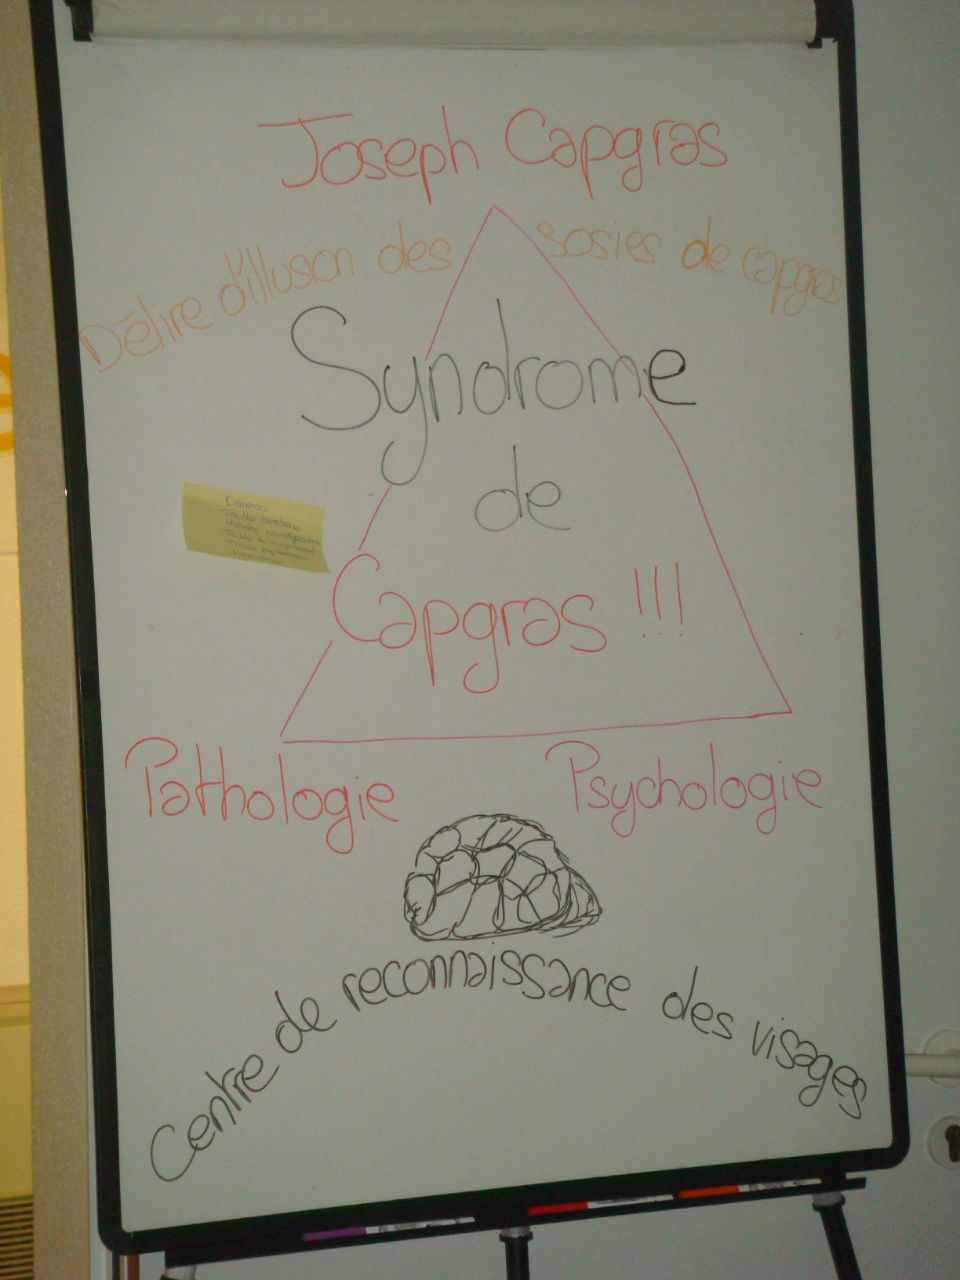 Joseph Capgras
Délire d'illusion des sosies de capgras
Syndrome
de
Capgras !!!
Pathologie Psychologie
Centre de reconnaissance des visages